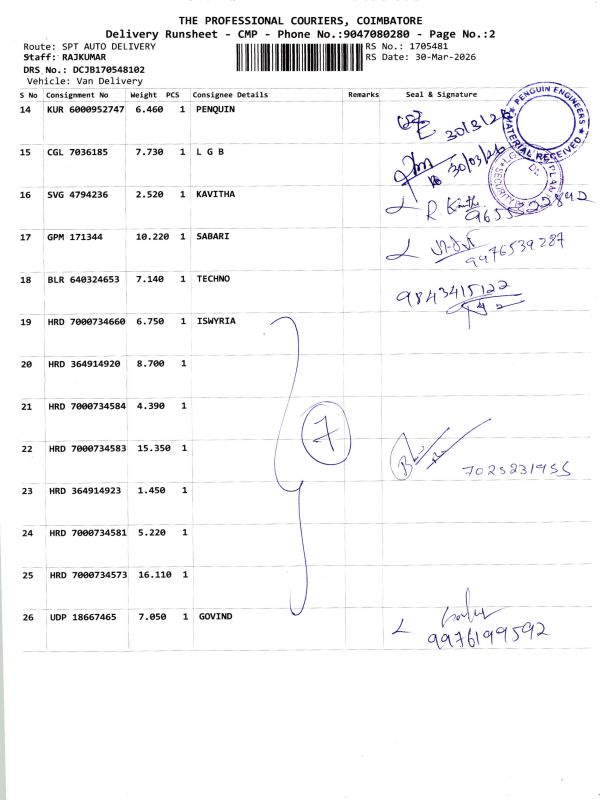 THE PROFESSIONAL COURIERS, COIMBATORE
Delivery Runsheet - CMP - Phone No.:9047080280 - Page No.:2
Route: SPT AUTO DELIVERY RS No.: 1705481
Staff: RAJKUMAR RS Date: 30-Mar-2026
DRS No.: DCJB170548102
Vehicle: Van Delivery
S No Consignment No Weight PCS Consignee Details Remarks Seal & Signature
14 KUR 6000952747 6.460 1 PENQUIN 30/3/26
PENGUIN ENGINEERS MATERIAL RECEIVED
15 CGL 7036185 7.730 1 L G B 30/03/26
SECURITY
16 SVG 4794236 2.520 1 KAVITHA R. 9655322892
17 GPM 171344 10.220 1 SABARI 9976539287
18 BLR 640324653 7.140 1 TECHNO 9843415122
19 HRD 7000734660 6.750 1 ISWYRIA
20 HRD 364914920 8.700 1
21 HRD 7000734584 4.390 1
7
22 HRD 7000734583 15.350 1 7025231955
23 HRD 364914923 1.450 1
24 HRD 7000734581 5.220 1
25 HRD 7000734573 16.110 1
26 UDP 18667465 7.050 1 GOVIND 9976199592